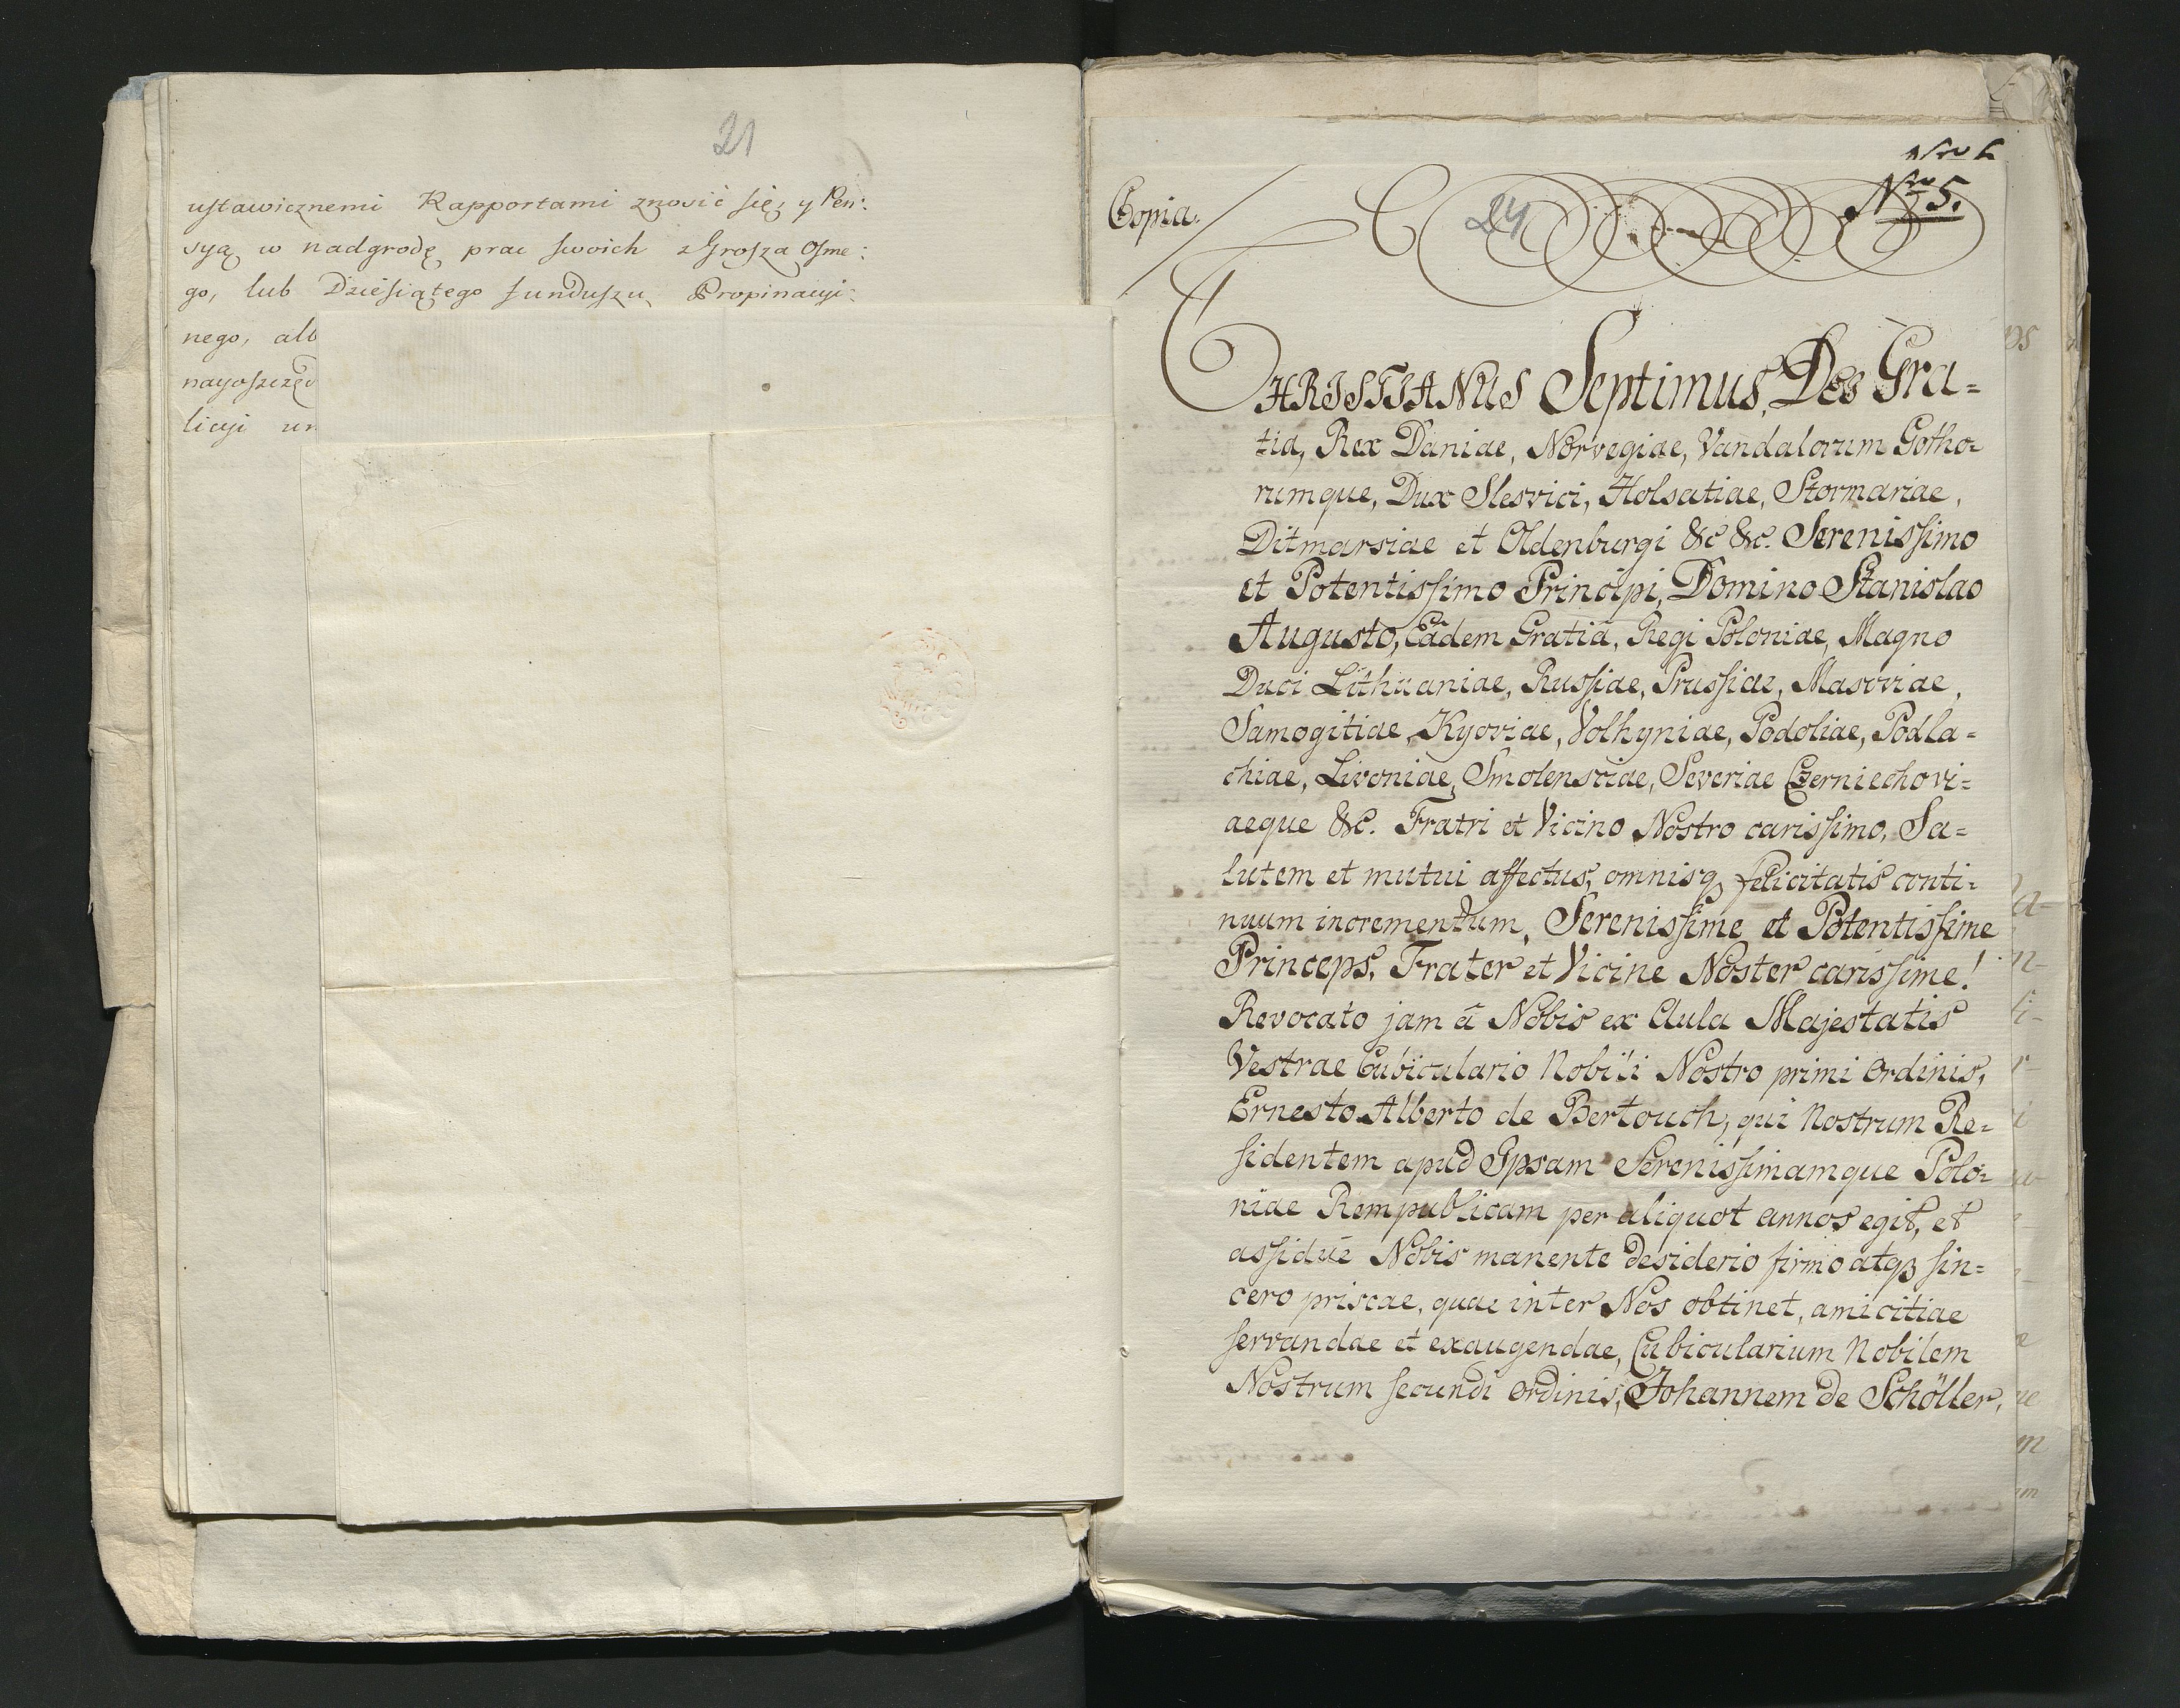 21
ustawicznemi Rapportami znosić się, y Pen:
syą w nadgrodę prac swoich z Grosza Osme:
go, lub Dziesiątego funduszu Propinacyi:
nego, alb
nayoszczęd
licyi un
Copia.
24
Nro 5.
CHRISTIANUS Septimus, Dei Gra=
tia, Rex Daniae, Norvegiae, Vandalorum Gotho=
rumque, Dux Slesvici, Holsatiae, Stormariae,
Ditmarsiae et Oldenburgi &c &c. Serenissimo
et Potentissimo Principi, Domino Stanislao
Augusto, Eâdem Gratiâ, Regi Poloniae, Magno
Duci Lithuaniae, Russiae, Prussiae, Masoviae,
Samogitiae, Kyoviae, Volhyniae, Podoliae, Podla=
chiae, Livoniae, Smolensciae, Severiae Czerniechovi=
aeque &c. Fratri et Vicino Nostro carissimo, Sa=
lutem et mutui affectus, omnisq, felicitatis conti=
nuum incrementum, Serenissime et Potentissime
Princeps, Frater et Vicine Noster carissime!
Revocato jam â Nobis ex Aula Majestatis
Vestrae Cubiculario Nobili Nostro primi Ordinis,
Ernesto Alberto de Bertouch, qui Nostrum Re=
sidentem apud Ipsam Serenissimamque Polo=
niae Rempublicam per aliquot annos egit, et
assidue Nobis manente desiderio firmo atq sin=
cero priscae, quae inter Nos obtinet, amicitiae
servandae et exaugendae, Cubicularium Nobilem
Nostrum secundi Ordinis, Johannem de Schöller,